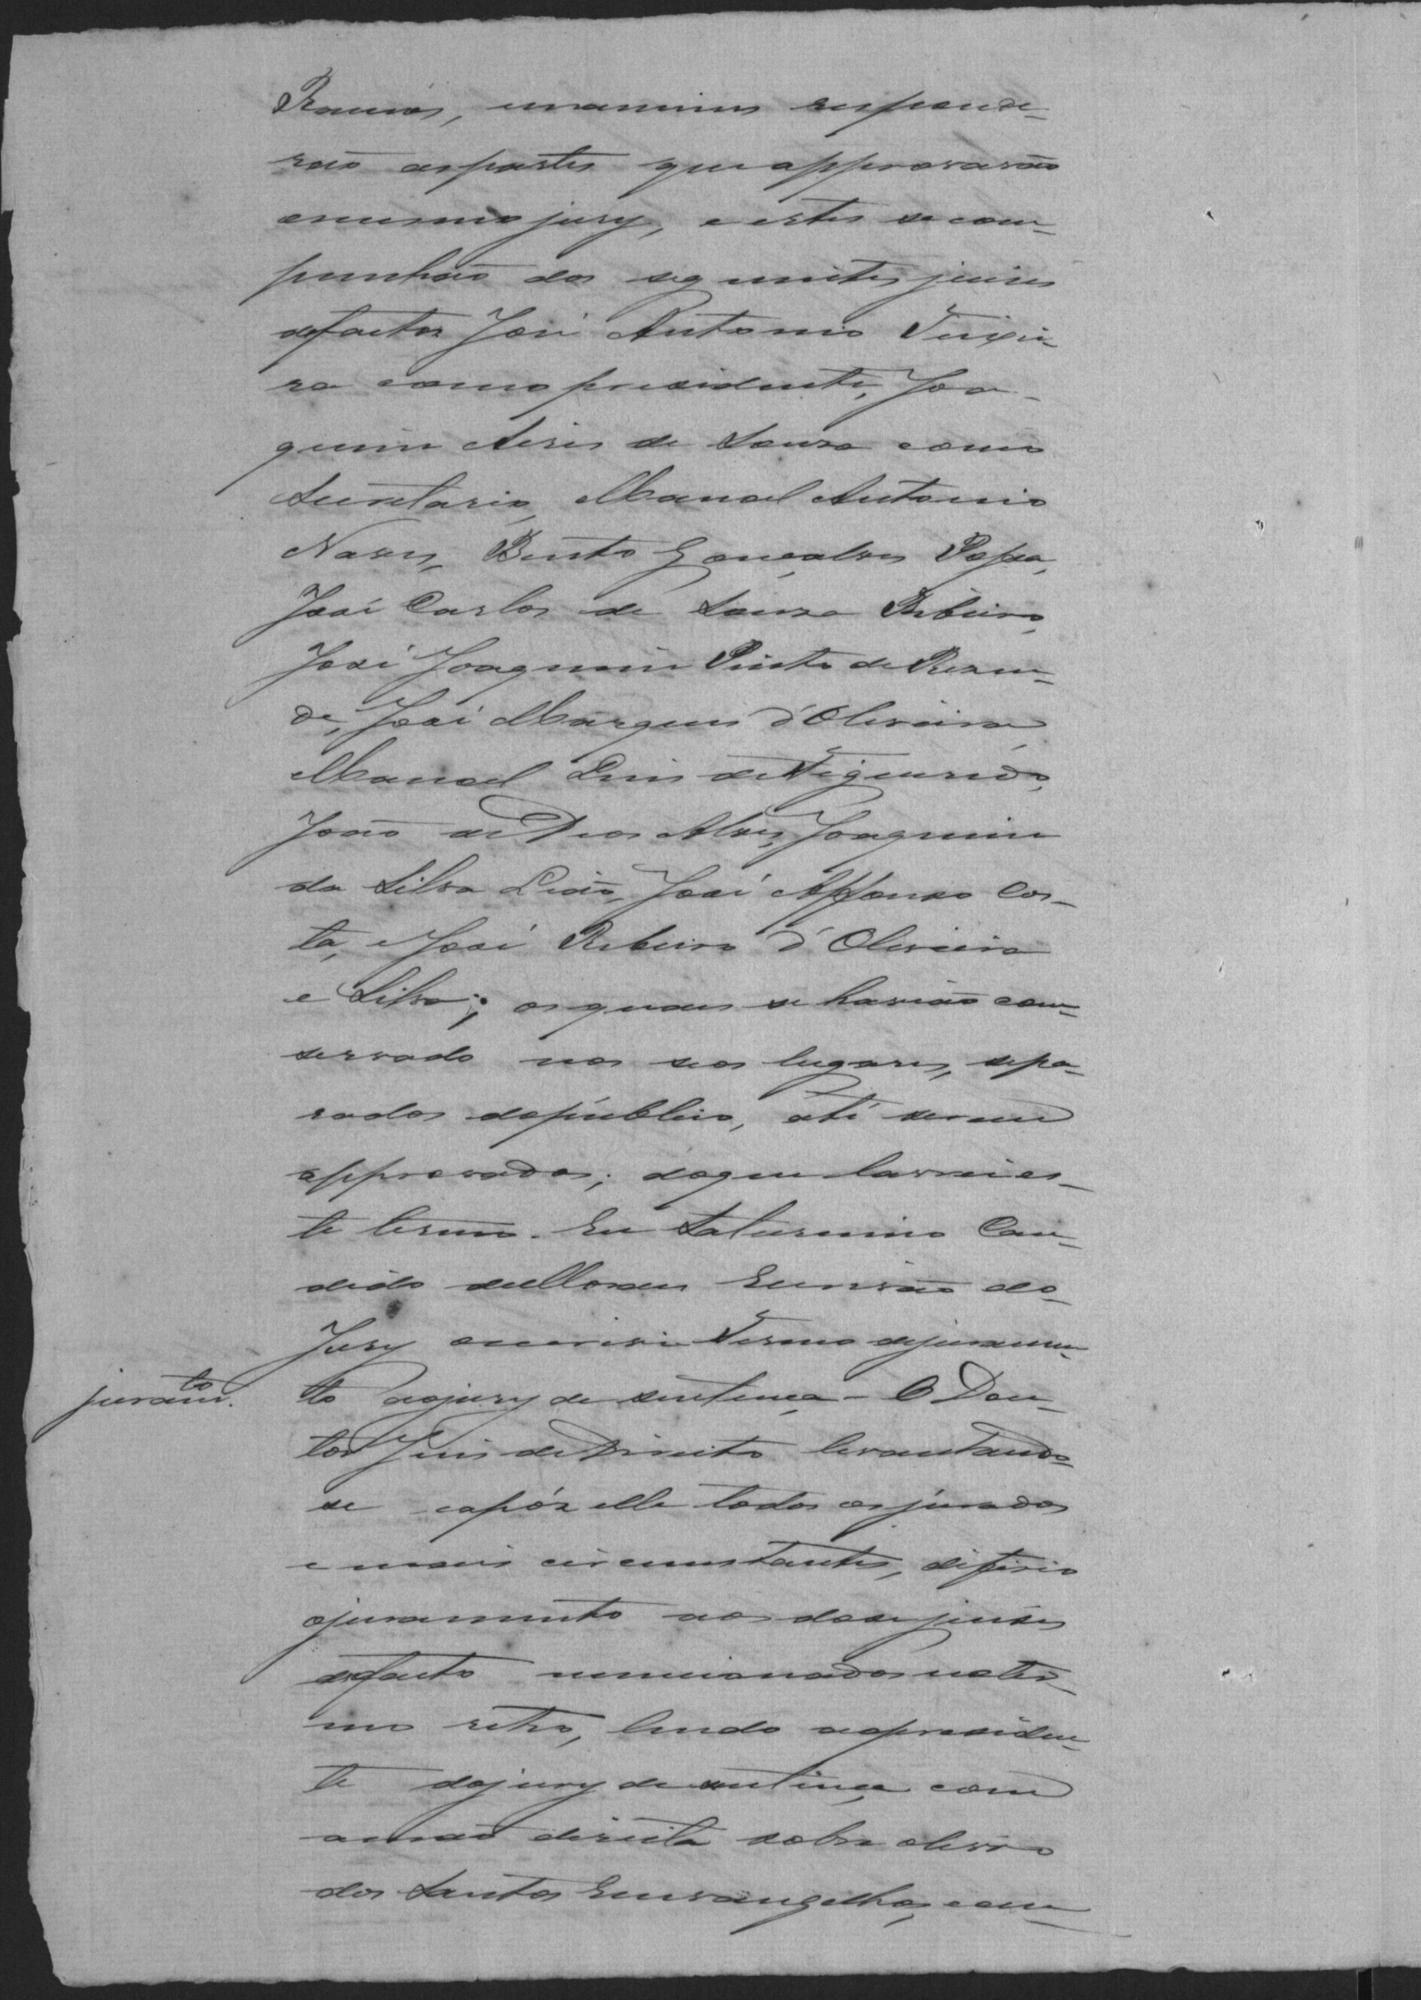 Ramos, unanimes responde-
rão as partes que approvavão
o mesmo jury, e estes se com-
punhão dos seguintes juises
de factos José Antonio Teixei-
ra como presidente, Joa-
quim Aires de Souza como
Secretario, Manoel Antonio
Naves, Bento Gonçalves
José Carlos de Souza Ribeiro,
José Joaquim Pinto de Resen-
de, José Marques d'Oliveira
Manoel Luis de Figueiredo,
João de Deos Alves, Joaquim
da Silva Leão, José Affonso Cos-
ta, e José Ribeiro d'Oliveira
e Silva; os quaes se havião con-
servado nos seos lugares, sepa-
rados do publico, até serem
approvados; do que lavrei es-
te termo. Eu Saturnino Can-
dido de Moraes Escrivão do
Jury o escrivi Termo de juramen-
juramto. to ao jury de sentença - O Dou-
tor Juis de Direito levantando
se e após elle todos os jurados
e mais circunstantes, diferio
o juramento aos dose juises
de facto mencionados no ter-
mo retro, lendo o presiden-
te do jury de sentença com
a mão direita sobre o livro
dos Santos Envangelhos, com